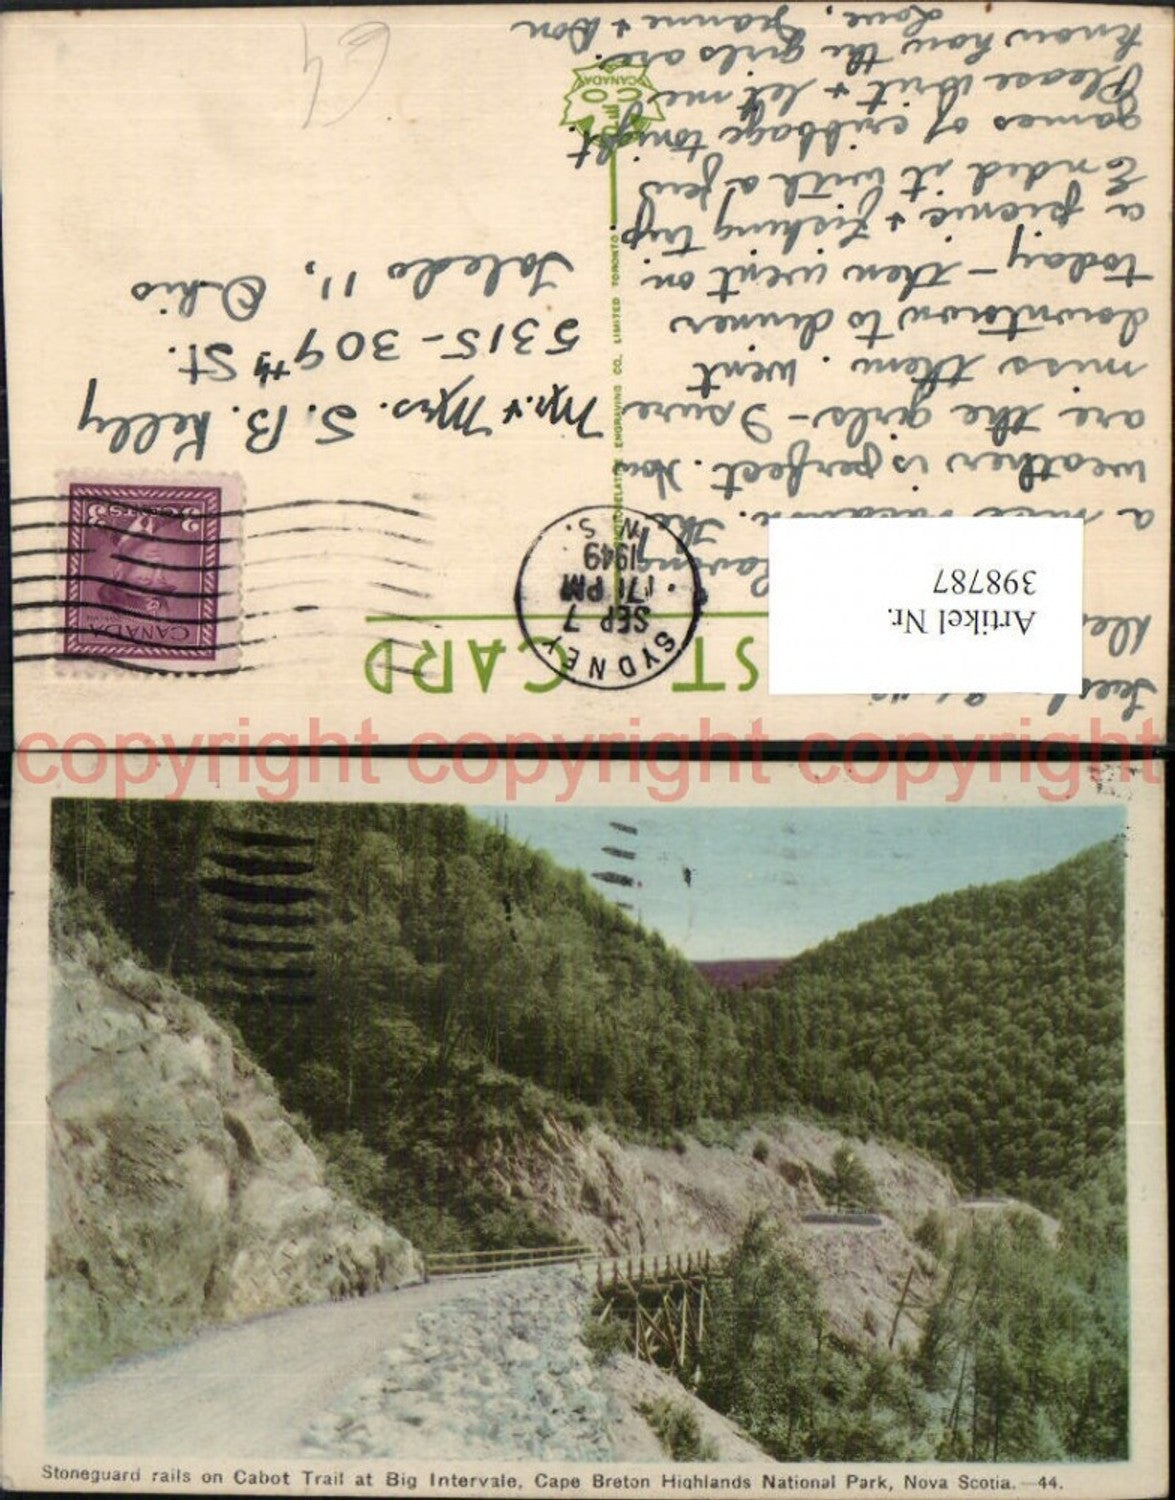 POST CARD
Artikel Nr.
398787
a nice vacation. The
weather is perfect. How
are the girls - I sure
miss them. Went
downtown to dinner
today - then went on
a picnic & fishing trip
Ended it with a few
games of cribbage tonight.
Please writ & let me
know how the girls are.
Love, Jeanne & Don
SYDNEY
SEP 7
17 PM
1949
N.S.
CANADA
3 3
Mr. & Mrs. S. B. Kelly
5315 - 309th St.
Toledo 11, Ohio
ENGRAVING CO. LIMITED TORONTO
CANADA
64
copyright copyright copyright
Stoneguard rails on Cabot Trail at Big Intervale, Cape Breton Highlands National Park, Nova Scotia.—44.